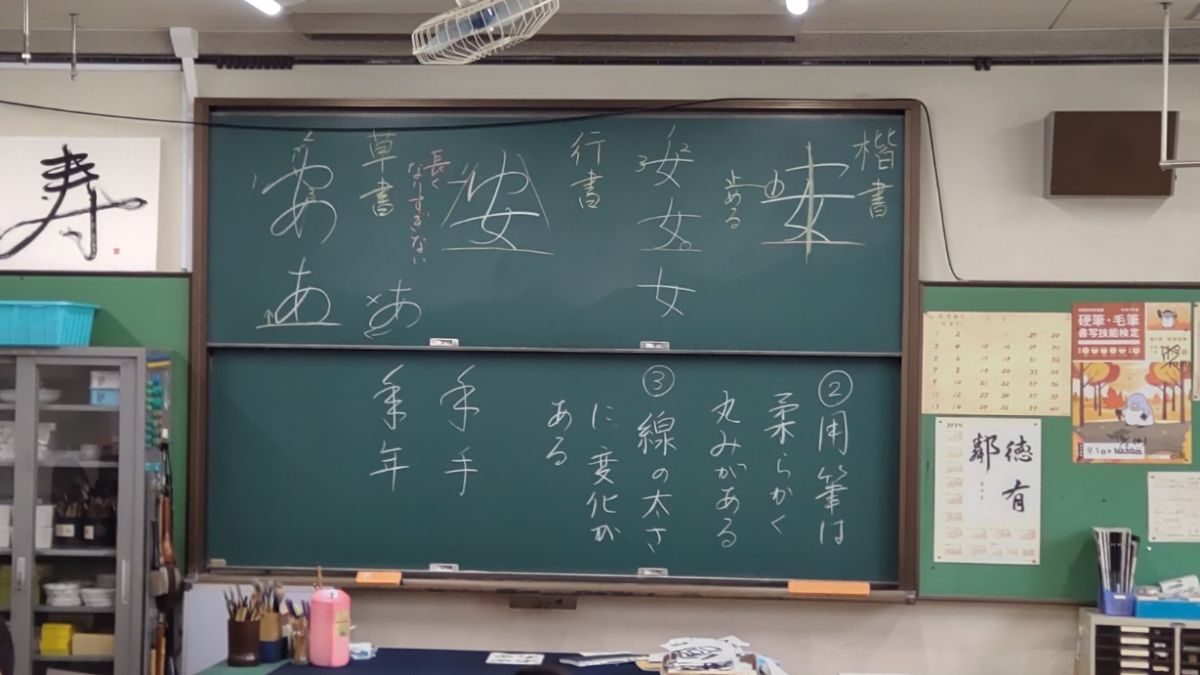 楷書
安
止める
女
女
女
1
2
3
行書
安
長く
なりすぎない
草書
安
あ
あ
×
②用筆は
柔らかく
丸みがある
③線の太さ
に変化が
ある
手手
年年
寿
硬筆・毛筆
書写技能検定
9.1
2024
徳有
鄰